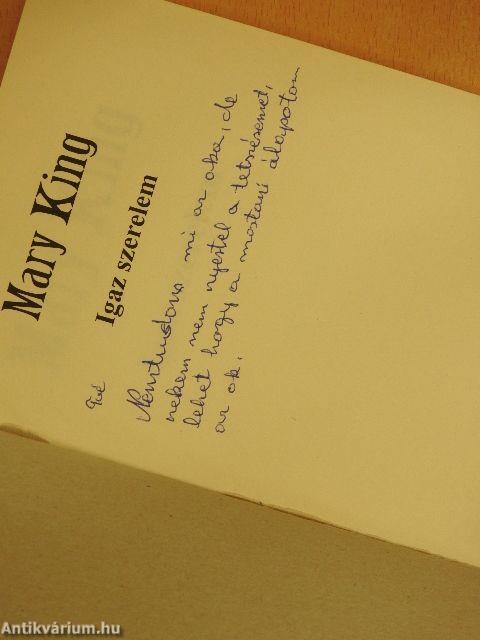 Mary King
Igaz szerelem
Némtudom mi az oka, de
nekem nem nyertel a tetszésemet,
lehet hogy a mostani álapotom
az ok.
Antikvárium.hu